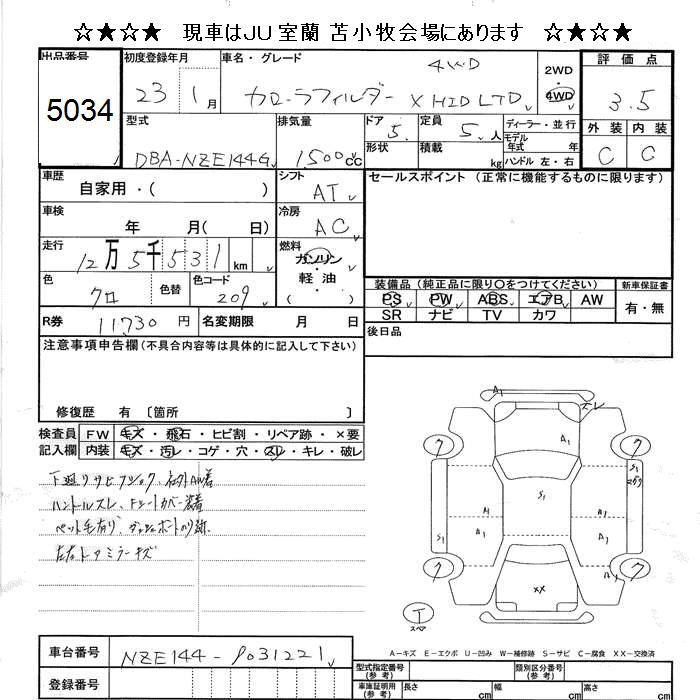 ☆★☆★ 現車はJU室蘭 苫小牧会場にあります ☆★☆★
出品番号
5034
初度登録年月
23 1月
車名・グレード
4WD
カローラフィルダー X HID LTD
2WD
4WD
評価点
3.5
外装 内装
C C
型式
DBA-NZE144G
排気量
1500cc
ドア
5
形状
定員
5人
積載
kg
ディーラー・並行
モデル
年式 年
ハンドル 左・右
車歴
自家用・( )
シフト
AT
セールスポイント (正常に機能するものに限ります)
車検
年 月( 日)
冷房
AC
走行
12万5千531km
燃料
ガソリン
軽・油
( )
色
クロ
色替
色コード
209
装備品 (純正品に限り○をつけてください)
新車保証書
PS PW ABS エアB AW
SR ナビ TV カワ
有・無
R券 11730円
名変期限 月 日
後日品
注意事項申告欄(不具合内容等は具体的に記入して下さい)
修復歴 有〔箇所 〕
検査員
記入欄
FW キズ・飛石・ヒビ割・リペア跡・×要
内装 キズ・汚レ・コゲ・穴・スレ・キレ・破レ
下廻りサビ
ハンドルスレ、Fシートカバー装着
ペット毛有り、ダッシュボードのり跡
左右ドアミラーキズ
A1
A1
S1
S1
A1
A1
S1
XX
ア
ア
ア
ア
T
スペア
A-キズ E-エクボ U-凹み W-補修跡 S-サビ C-腐食 XX-交換済
車台番号
NZE144-9031221
登録番号
型式指定番号
(参考)
類別区分番号
(参考)
車庫証明用
(参考)
長さ
cm
幅
cm
高さ
cm